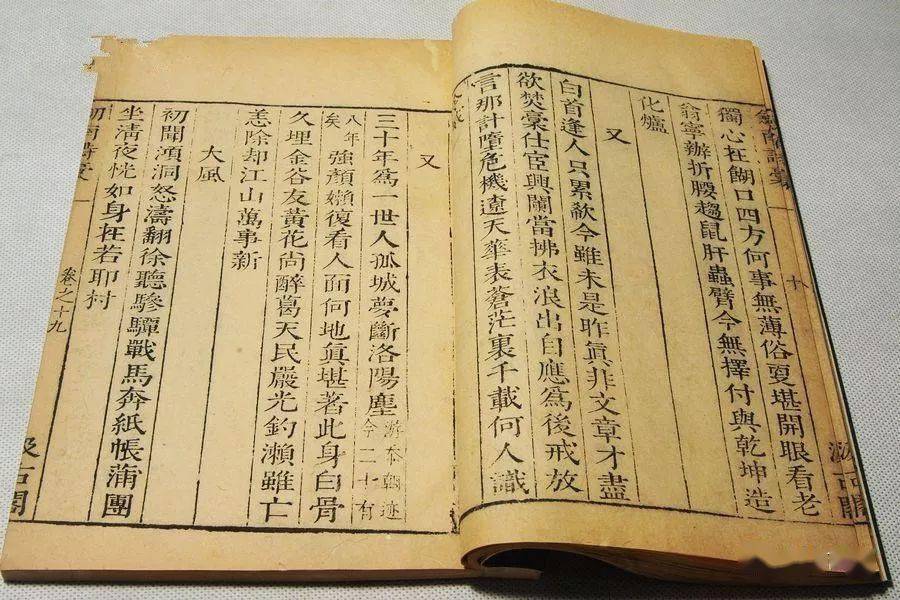 劍南詩稾 十 汲古閣
獨心在餬口四方何事無薄俗更堪開眼看老
翁寧辦折腰趨鼠肝蟲臂今無擇付與乾坤造
化爐
又
白首逢人只累欷今雖未是昨眞非文章才盡
欲焚稾仕宦興闌當拂衣浪出自應爲後戒放
言那計墮危機遼天華表蒼茫裏千載何人識
令威
又
三十年爲一世人孤城夢斷洛陽塵今二十有
八年矣強顏嬾復看人面何地眞堪著此身白骨
久埋金谷友黃花尚醉葛天民嚴光釣瀨雖亡
恙除却江山萬事新
大風
初聞澒洞怒濤翻徐聽驂驔戰馬奔紙帳蒲團
坐清夜恍如身在若耶村
劍南詩稾 卷之十九 汲古閣